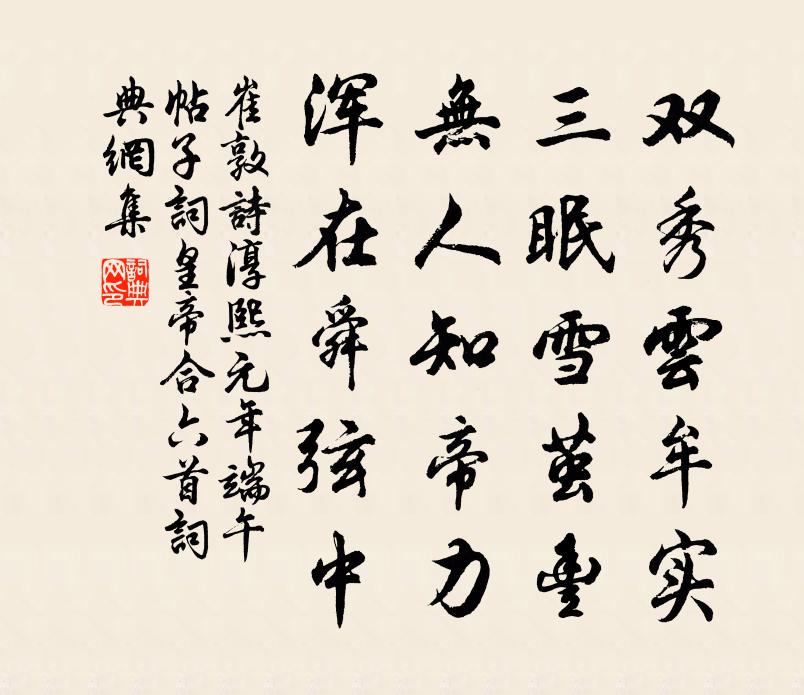 双秀雲牟实
三眠雪茧豊
無人知帝力
浑在舜弦中
崔敦詩淳熙元年端午
帖子詞皇帝合六首詞
典網集
詞典
网印